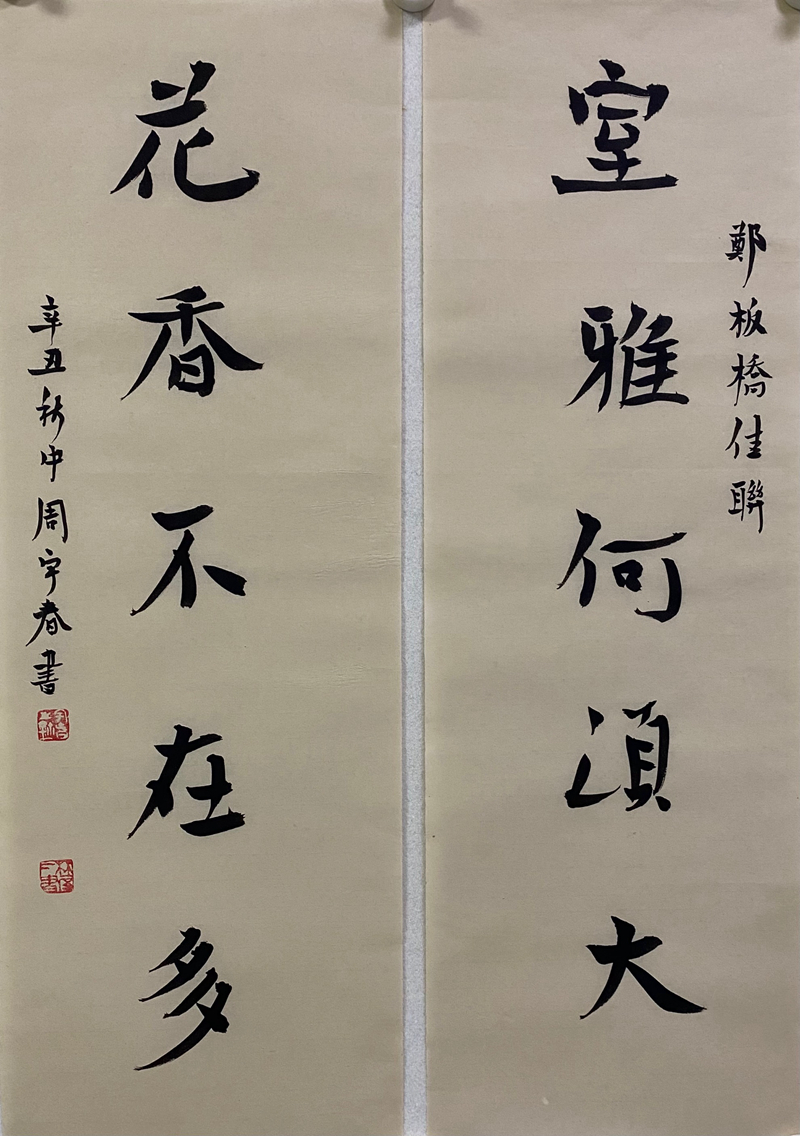 鄭板橋佳聯
室雅何須大
花香不在多
辛丑秋中周宇春書